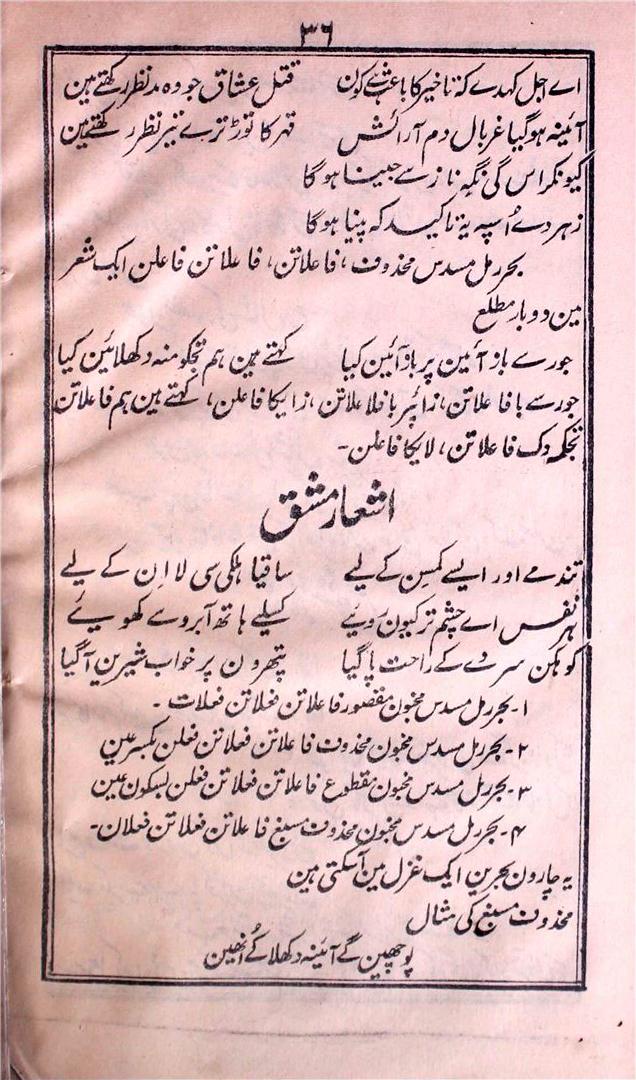 ۳۶
اے اجل کہدے کہ تاخیر کا باعث ہے کون قتل عشاق جو وہ مدنظر رکھتے ہین
آئینہ ہوگیا غربال دم آرائش قہر کا توڑ ترے تیر نظر رکھتے ہین
کیونکر اس کی نگہ ناز سے جینا ہوگا
زہر دے اُسپہ یہ تاکید کہ پینا ہوگا
بحر رمل مسدس محذوف، فاعلاتن، فاعلاتن فاعلن ایک شعر
مین دوبار مطلع
جورسے باز آئین پر باز آئین کیا کہتے ہین ہم تجکو منہ دکھلائین کیا
جور سے با فاعلاتن، زا پر با فاعلاتن، زا یکا فاعلن، کہتے ہین ہم فاعلاتن
تجکہ دک فاعلاتن، لا یکا فاعلن۔
اشعار مشق
تند مے اور ایسے کمسن کے لیے ساقیا ہلکی سی لا ان کے لیے
ہر نفس اے چشم تر کیون رویئے کسلیے ہاتھ آبرو سے کھویئے
کوہکن سر دے کے راحت پا گیا پتھرون پر خواب شیرین آگیا
۱- بحر رمل مسدس مخبون مقصور فاعلاتن فعلاتن فعلات ۔
۲- بحر رمل مسدس مخبون محذوف فاعلاتن فعلاتن فعلن بکسر عین
۳- بحر رمل مسدس مخبون مقطوع فاعلاتن فعلاتن فعلن بسکون عین
۴- بحر رمل مسدس مخبون محذوف مسبغ فاعلاتن فعلاتن فعلان۔
یہ چارون بحرین ایک غزل مین آسکتی ہین
محذوف مسبغ کی مثال
پوچھین گے آئینہ دکھلا کے اُنھین